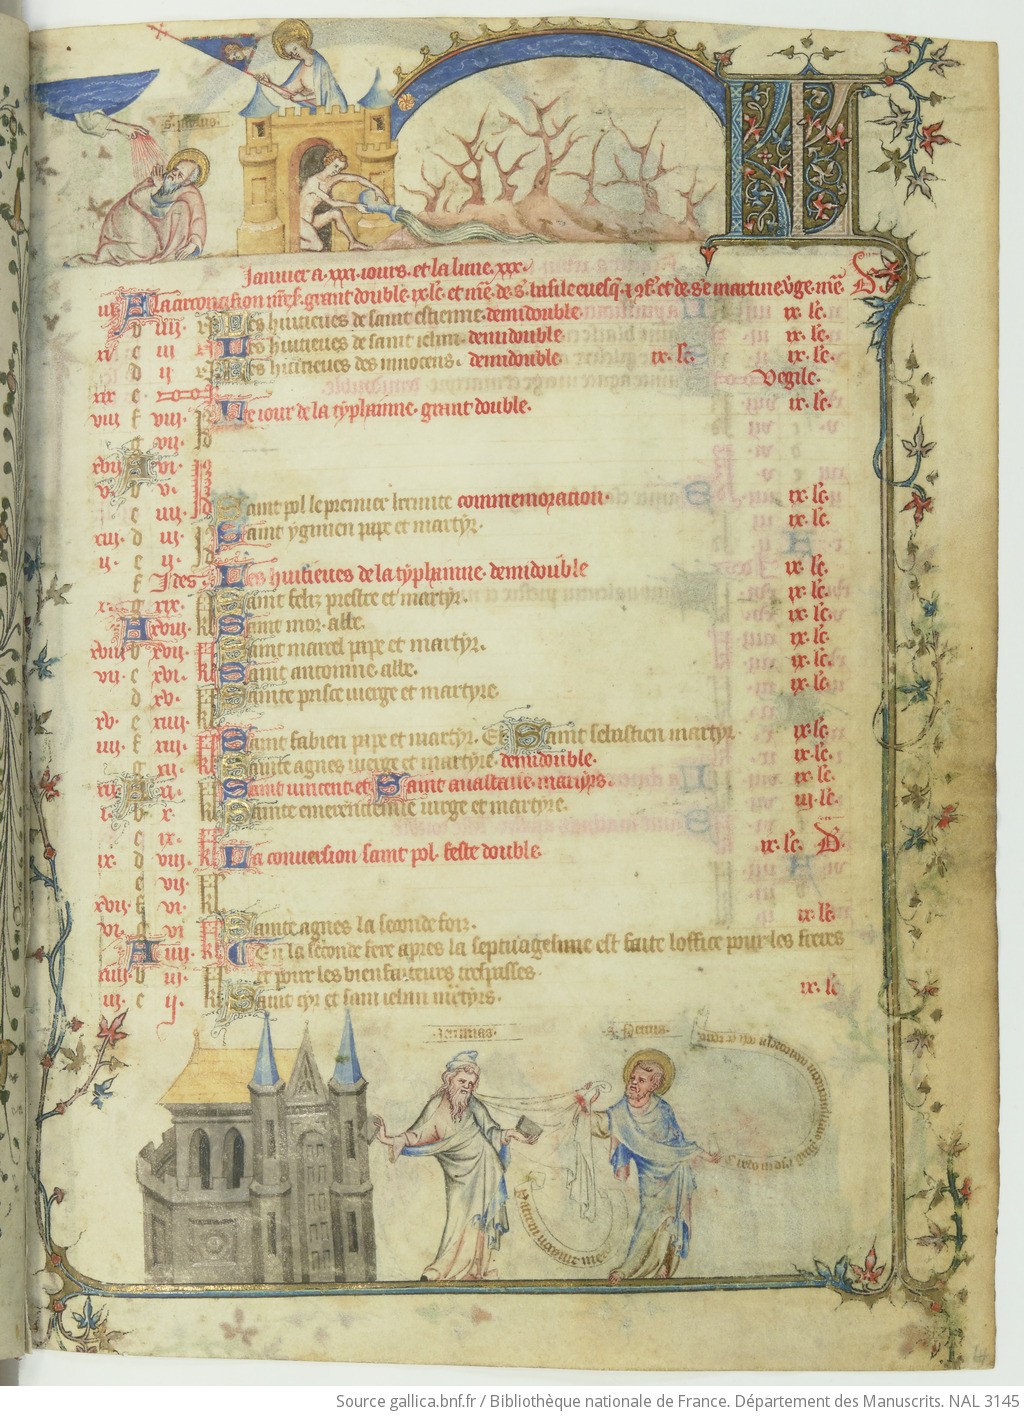 S. polus.
KL
Janvier a .xxxi. iours. et la lune .xxx.
iii A La circoncision nr̃e s. grant double. ix. lc. et mẽ de .s. basile euesq. 7 ɔf. et de .ste martine uige. mẽ D.
b iiii. N Les huitieues de saint estienne. demidouble. ix. lc.
xi c iii N Les huitieues de saint iehan. demidouble. ix. lc.
d ii N Les huitieues des innocens. demidouble ix. lc. ix. lc.
xix e Vegile.
viii f viii. Id Le iour de la typhainne. grant double. ix. lc.
g vii. Id
xvi A vi. Id
v. b v. Id
c iiii. Id Saint pol le premier hermite commemoration. ix. lc.
xiii. d iii. Id Saint yginien pape et martyr. ix. lc.
ii. e ii. Id
f Ides. Les huitieues de la typhainne. demidouble ix. lc.
x. g xix. kl Saint felix prestre et martyr. ix. lc.
A xviii. kl Saint mor. abbe. ix. lc.
xviii b xvii. kl Saint marcel pape et martyr. ix. lc.
vii. c xvi. kl Saint antoinne. abbe. ix. lc.
d xv. kl Sainte prisce uierge et martyre. ix. lc.
xv. e xiiii. kl
iiii. f xiii. kl Saint fabien pape et martyr. Et Saint sebastien martyr. ix. lc.
g xii. kl Sainte agnes uierge et martyre. demidouble. ix. lc.
xii A xi. kl Saint uincent. et Saint anastaise. martyrs. ix. lc.
i. b x. kl Sainte emerencienne uirge et martyre. iii. lc.
c ix. kl
ix. d viii. kl La conuersion saint pol. feste double. ix. lc. D.
e vii. kl
xvii. f vi. kl
vi. g v kl Sainte agnes la seconde foiz. ix. lc.
A iiii. kl En la seconde fere apres la septuagesime est faite loffice pour les freres
xiiii. b iii. kl et pour les bienfaiteurs trespasses.
iii. c ii. kl Saint cyr et saint iehan martyrs. ix. lc
S. Petrus